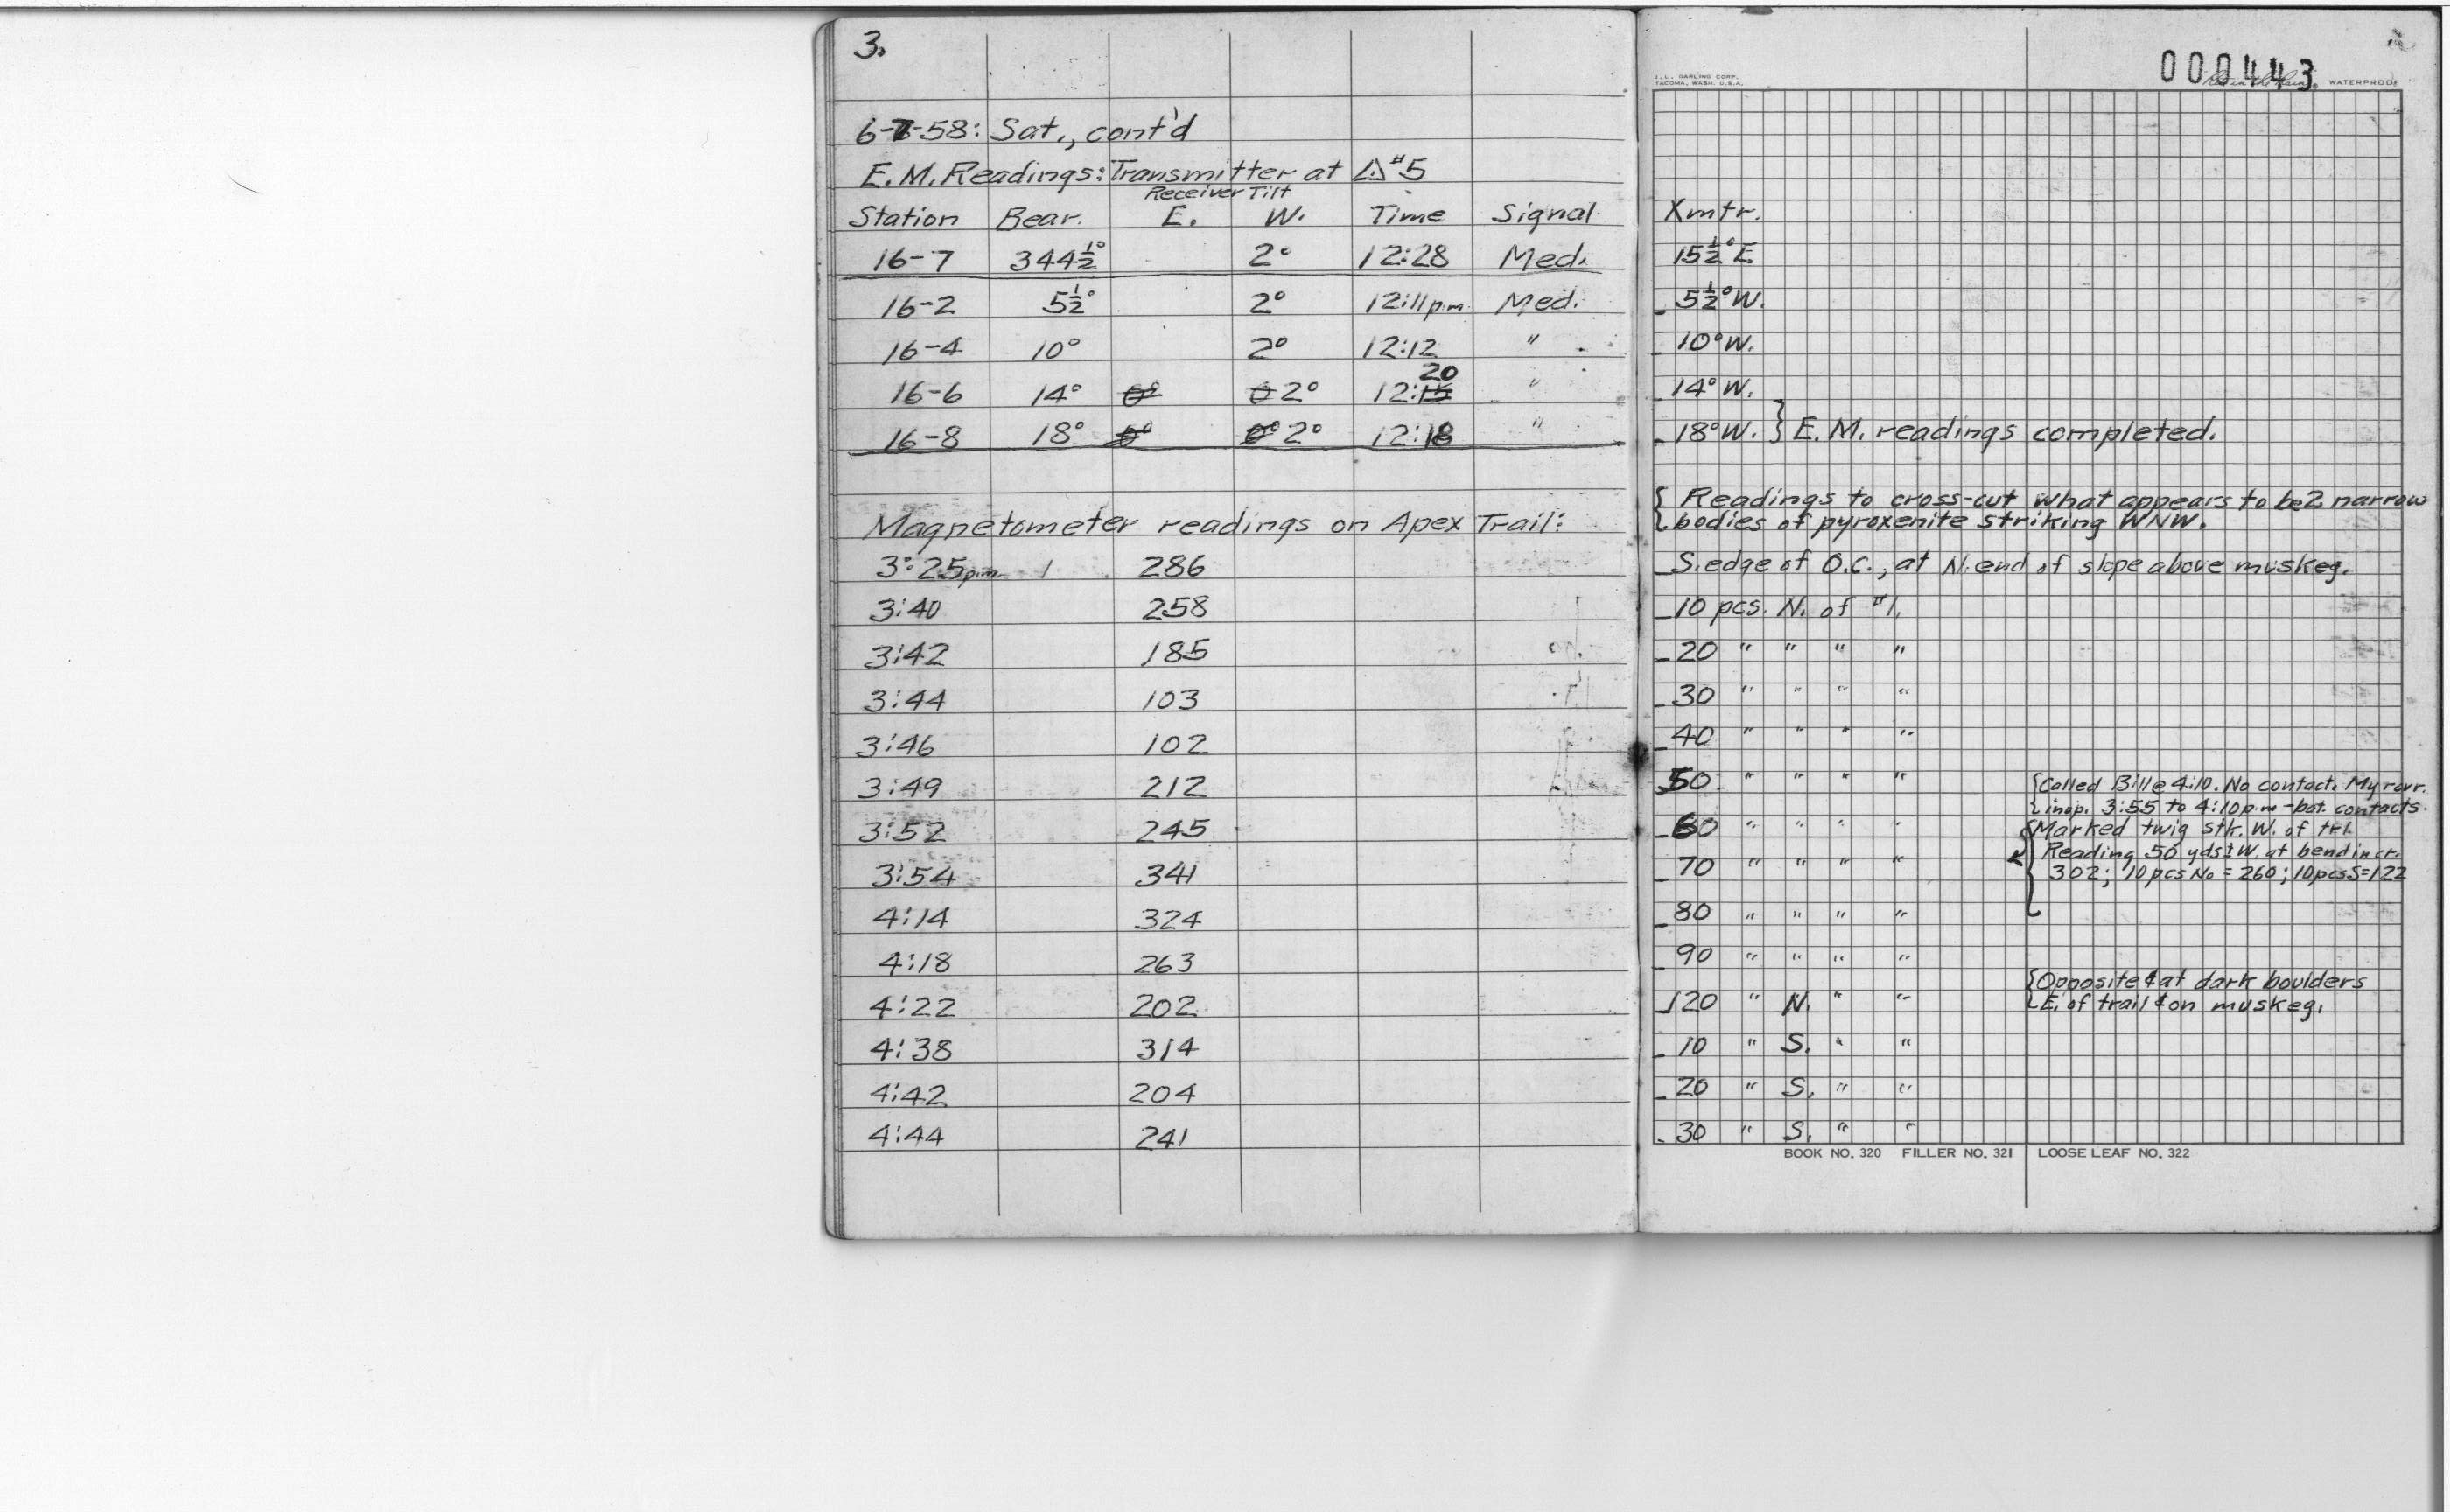 3.
6-7-58: Sat., cont'd
E.M. Readings: Transmitter at △#5
Receiver Tilt
Station Bear. E. W. Time Signal
16-7 344½° 2° 12:28 Med.
16-2 5½° 2° 12:11 p.m. Med.
16-4 10° 2° 12:12 "
16-6 14° 0° 0 2° 12:15 20 "
16-8 18° 0° 2° 12:18 "
Magnetometer readings on Apex Trail:
3:25 p.m. 1 286
3:40 258
3:42 185
3:44 103
3:46 102
3:49 212
3:52 245
3:54 341
4:14 324
4:18 263
4:22 202
4:38 314
4:42 204
4:44 241
J. L. DARLING CORP.
TACOMA, WASH. U.S.A.
000443
WATERPROOF
Xmtr.
15½° E
5½° W.
10° W.
14° W.
18° W. } E.M. readings completed.
{ Readings to cross-cut what appears to be 2 narrow
bodies of pyroxenite striking WNW.
S. edge of O.C., at N. end of slope above muskeg.
10 pcs. N. of #1.
20 " " " "
30 " " " "
40 " " " "
50 " " " "
60 " " " "
70 " " " "
80 " " " "
90 " " " "
120 " N. " "
10 " S. " "
20 " S. " "
30 " S. " "
{ Called Bill @ 4:10. No contact. My rcvr.
inop. 3:55 to 4:10 p.m. - bat. contacts.
{ Marked twig stk. W. of trl.
Reading 50 yds ± W. at bend in cr.
302; 10 pcs No = 260; 10 pcs S = 122
{ Opposite & at dark boulders
E. of trail & on muskeg.
BOOK NO. 320 FILLER NO. 321 LOOSE LEAF NO. 322